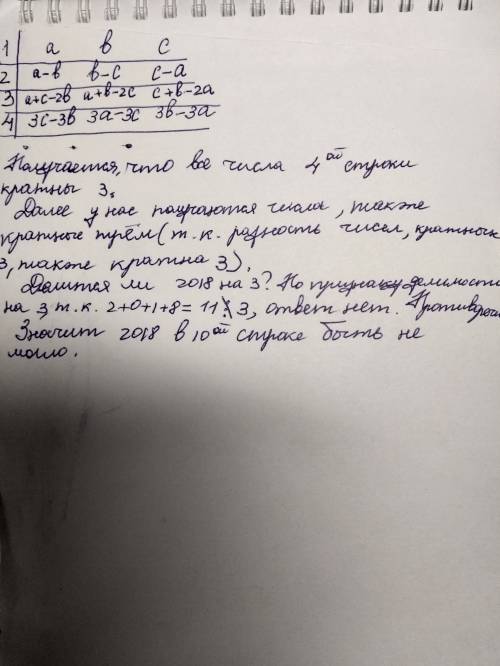 1 a b c
2 a-b b-c c-a
3 a+c-2b a+b-2c c+b-2a
4 3c-3b 3a-3c 3b-3a
Получается, что все числа 4ой строки
кратны 3.
Далее у нас получаются числа, также
кратные трём (т.к. разность чисел, кратных
3, также кратна 3).
Делится ли 2018 на 3? По признаку делимости
на 3, т.к. 2+0+1+8=11⋮̸3, ответ нет. Противореч
Значит 2018 в 10ой строке быть не
могло.